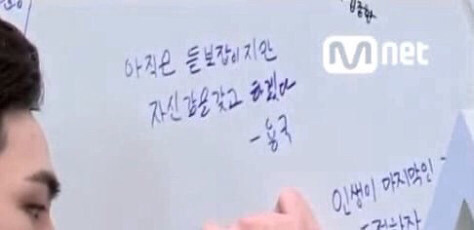 Mnet
아직은 듣보잡이지만
자신감을갖고 하겠다
- 용국
인생이 마지막인